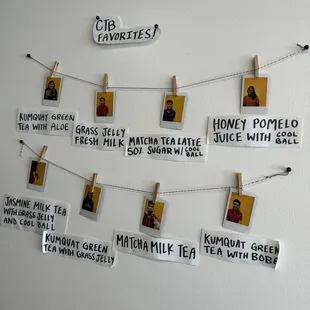 CTB
FAVORITES!
KUMQUAT GREEN
TEA WITH ALOE
GRASS JELLY
FRESH MILK
MATCHA TEA LATTE
50% SUGAR W/ COOL
BALL
HONEY POMELO
JUICE WITH COOL
BALL
JASMINE MILK TEA
WITH GRASS JELLY
AND COOL BALL
KUMQUAT GREEN
TEA WITH GRASS JELLY
MATCHA MILK TEA
KUMQUAT GREEN
TEA WITH BOBA